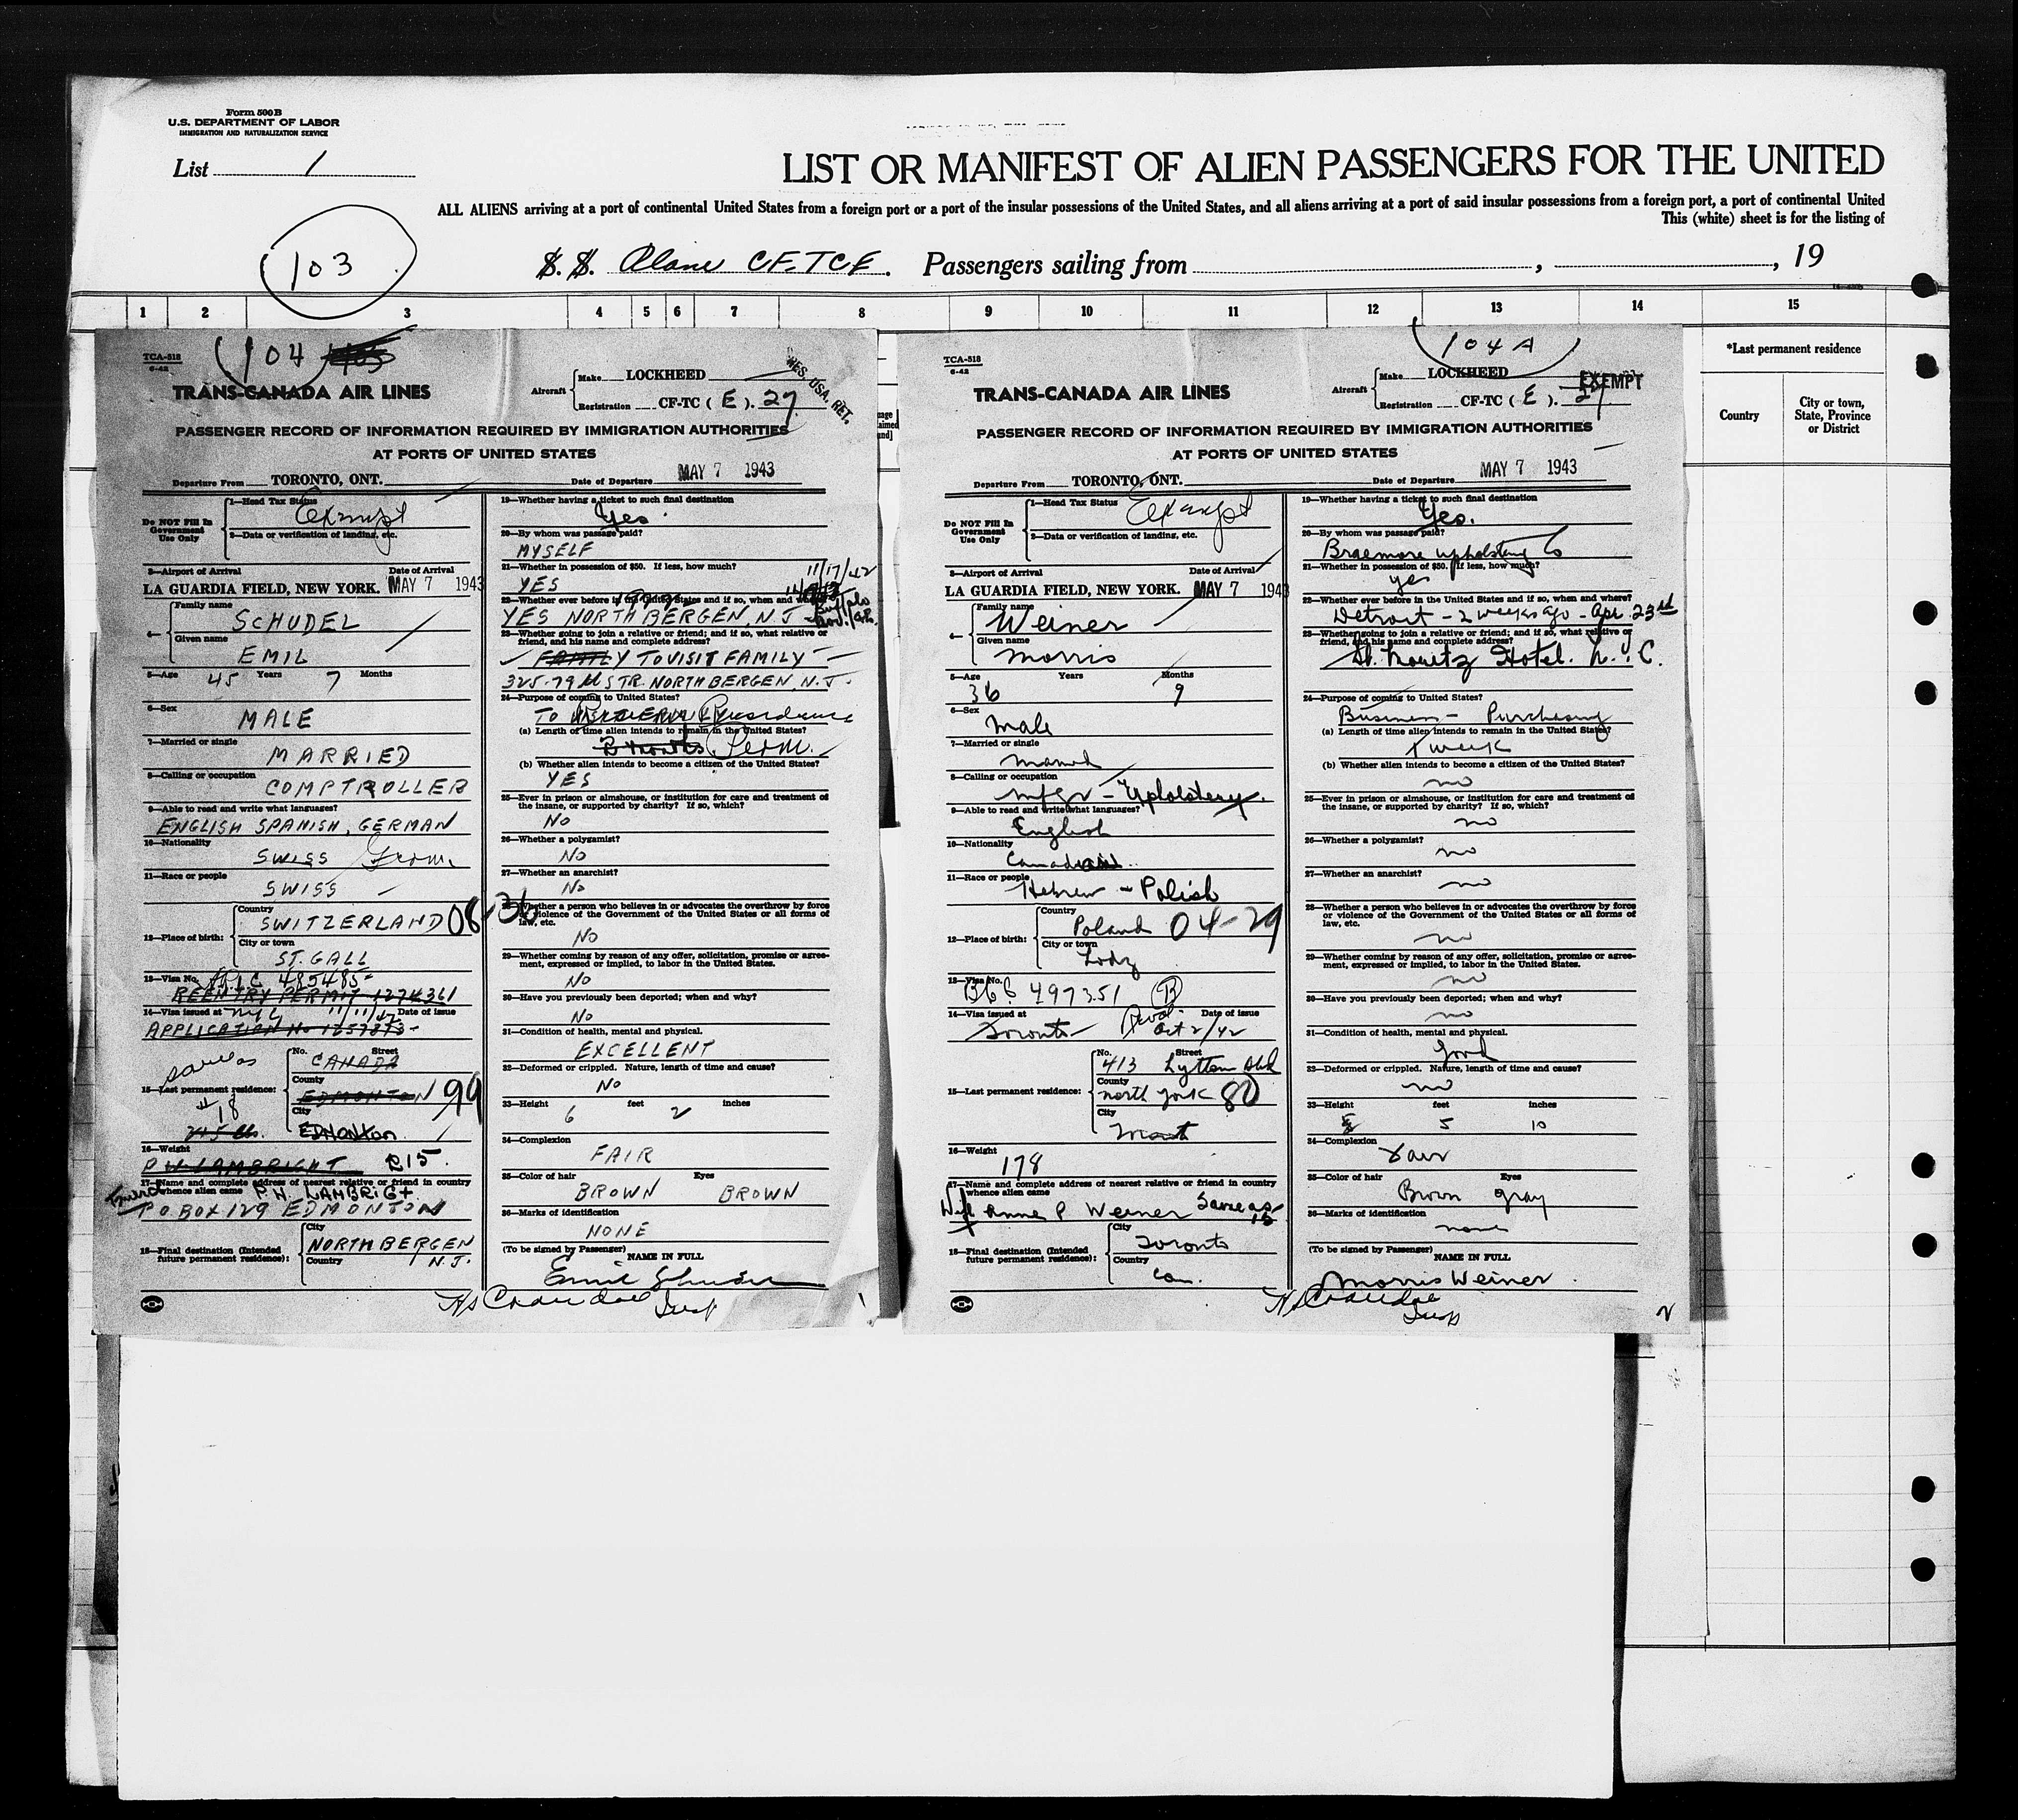 Form 500B
U.S. DEPARTMENT OF LABOR
IMMIGRATION AND NATURALIZATION SERVICE
List 1
LIST OR MANIFEST OF ALIEN PASSENGERS FOR THE UNITED
ALL ALIENS arriving at a port of continental United States from a foreign port or a port of the insular possessions of the United States, and all aliens arriving at a port of said insular possessions from a foreign port, a port of continental United
This (white) sheet is for the listing of
103
S. S. Plane CF.TCE. Passengers sailing from , , 19
1 2 3 4 5 6 7 8 9 10 11 12 13 14 15
*Last permanent residence
Country
City or town, State, Province or District
TCA-518
6-42
104
TRANS-CANADA AIR LINES
Aircraft
Make LOCKHEED
Registration CF-TC ( E ). 27
RES. USA. RET.
PASSENGER RECORD OF INFORMATION REQUIRED BY IMMIGRATION AUTHORITIES
AT PORTS OF UNITED STATES
Departure From TORONTO, ONT. Date of Departure MAY 7 1943
Do NOT Fill In Government Use Only
1—Head Tax Status
Exempt
2—Data or verification of landing, etc.
3—Airport of Arrival Date of Arrival
LA GUARDIA FIELD, NEW YORK. MAY 7 1943
4—
Family name
SCHUDEL
Given name
EMIL
5—Age 45 Years 7 Months
6—Sex
MALE
7—Married or single
MARRIED
8—Calling or occupation
COMPTROLLER
9—Able to read and write what languages?
ENGLISH SPANISH, GERMAN
10—Nationality
SWISS Germ.
11—Race or people
SWISS
12—Place of birth:
Country
SWITZERLAND 08-36
City or town
ST. GALL
13—Visa No. 485485
REENTRY PERMIT 1274361
14—Visa issued at NYC 11/11/42 Date of issue
APPLICATION No 1657873
15—Last permanent residence:
No. Street
CANADA
County
EDMONTON 99
City
EDMONTON
# 18
215 lbs.
16—Weight
P H LAMBRIGHT 215.
17—Name and complete address of nearest relative or friend in country whence alien came P.H. LAMBRIGT
Friend
P O BOX 129 EDMONTON
18—Final destination (Intended future permanent residence):
City
NORTH BERGEN
Country N.J.
19—Whether having a ticket to such final destination
Yes
20—By whom was passage paid?
MYSELF
21—Whether in possession of $50. If less, how much?
YES 11/17/42
22—Whether ever before in the United States and if so, when and where?
YES NORTH BERGEN, N.J. Buffalo
23—Whether going to join a relative or friend; and if so, what relative or friend, and his name and complete address?
FAMILY TO VISIT FAMILY
325-79th STR. NORTH BERGEN, N.J.
24—Purpose of coming to United States?
TO Residence
(a) Length of time alien intends to remain in the United States?
3 months Perm.
(b) Whether alien intends to become a citizen of the United States?
YES
25—Ever in prison or almshouse, or institution for care and treatment of the insane, or supported by charity? If so, which?
NO
26—Whether a polygamist?
NO
27—Whether an anarchist?
NO
28—Whether a person who believes in or advocates the overthrow by force or violence of the Government of the United States or all forms of law, etc.
NO
29—Whether coming by reason of any offer, solicitation, promise or agreement, expressed or implied, to labor in the United States.
NO
30—Have you previously been deported; when and why?
NO
31—Condition of health, mental and physical.
EXCELLENT
32—Deformed or crippled. Nature, length of time and cause?
NO
33—Height 6 feet 2 inches
34—Complexion
FAIR
35—Color of hair Eyes
BROWN BROWN
36—Marks of identification
NONE
(To be signed by Passenger) NAME IN FULL
Emil Schudel
Insp
TCA-518
6-42
104A
TRANS-CANADA AIR LINES
Aircraft
Make LOCKHEED
Registration CF-TC ( E ). 27
EXEMPT
PASSENGER RECORD OF INFORMATION REQUIRED BY IMMIGRATION AUTHORITIES
AT PORTS OF UNITED STATES
Departure From TORONTO, ONT. Date of Departure MAY 7 1943
Do NOT Fill In Government Use Only
1—Head Tax Status
Exempt
2—Data or verification of landing, etc.
3—Airport of Arrival Date of Arrival
LA GUARDIA FIELD, NEW YORK. MAY 7 1943
4—
Family name
Weiner
Given name
Morris
5—Age Years Months
36 9
6—Sex
Male
7—Married or single
Married
8—Calling or occupation
Mfgr - Upholstery.
9—Able to read and write what languages?
English
10—Nationality
Canadian
11—Race or people
Hebrew - Polish
12—Place of birth:
Country
Poland 04-29
City or town
Lodz
13—Visa No.
497351 B
14—Visa issued at Date of issue
Toronto Oct 2/42
15—Last permanent residence:
No. Street
413 Lytton Blvd
County
North York 80
City
16—Weight
178
17—Name and complete address of nearest relative or friend in country whence alien came
Wife Anne P Weiner Same as 15
18—Final destination (Intended future permanent residence):
City
Toronto
Country
Can.
19—Whether having a ticket to such final destination
Yes.
20—By whom was passage paid?
Braemore Upholstering Co
21—Whether in possession of $50. If less, how much?
yes
22—Whether ever before in the United States and if so, when and where?
Detroit - 2 weeks ago - Apr. 23rd
23—Whether going to join a relative or friend; and if so, what relative or friend, and his name and complete address?
St. Moritz Hotel. N.Y.C.
24—Purpose of coming to United States?
Business - Purchasing
(a) Length of time alien intends to remain in the United States?
1 week
(b) Whether alien intends to become a citizen of the United States?
no
25—Ever in prison or almshouse, or institution for care and treatment of the insane, or supported by charity? If so, which?
no
26—Whether a polygamist?
no
27—Whether an anarchist?
no
28—Whether a person who believes in or advocates the overthrow by force or violence of the Government of the United States or all forms of law, etc.
no
29—Whether coming by reason of any offer, solicitation, promise or agreement, expressed or implied, to labor in the United States.
no
30—Have you previously been deported; when and why?
no
31—Condition of health, mental and physical.
Good
32—Deformed or crippled. Nature, length of time and cause?
no
33—Height feet inches
5 10
34—Complexion
Fair
35—Color of hair Eyes
Brown gray
36—Marks of identification
none
(To be signed by Passenger) NAME IN FULL
Morris Weiner
Insp
2